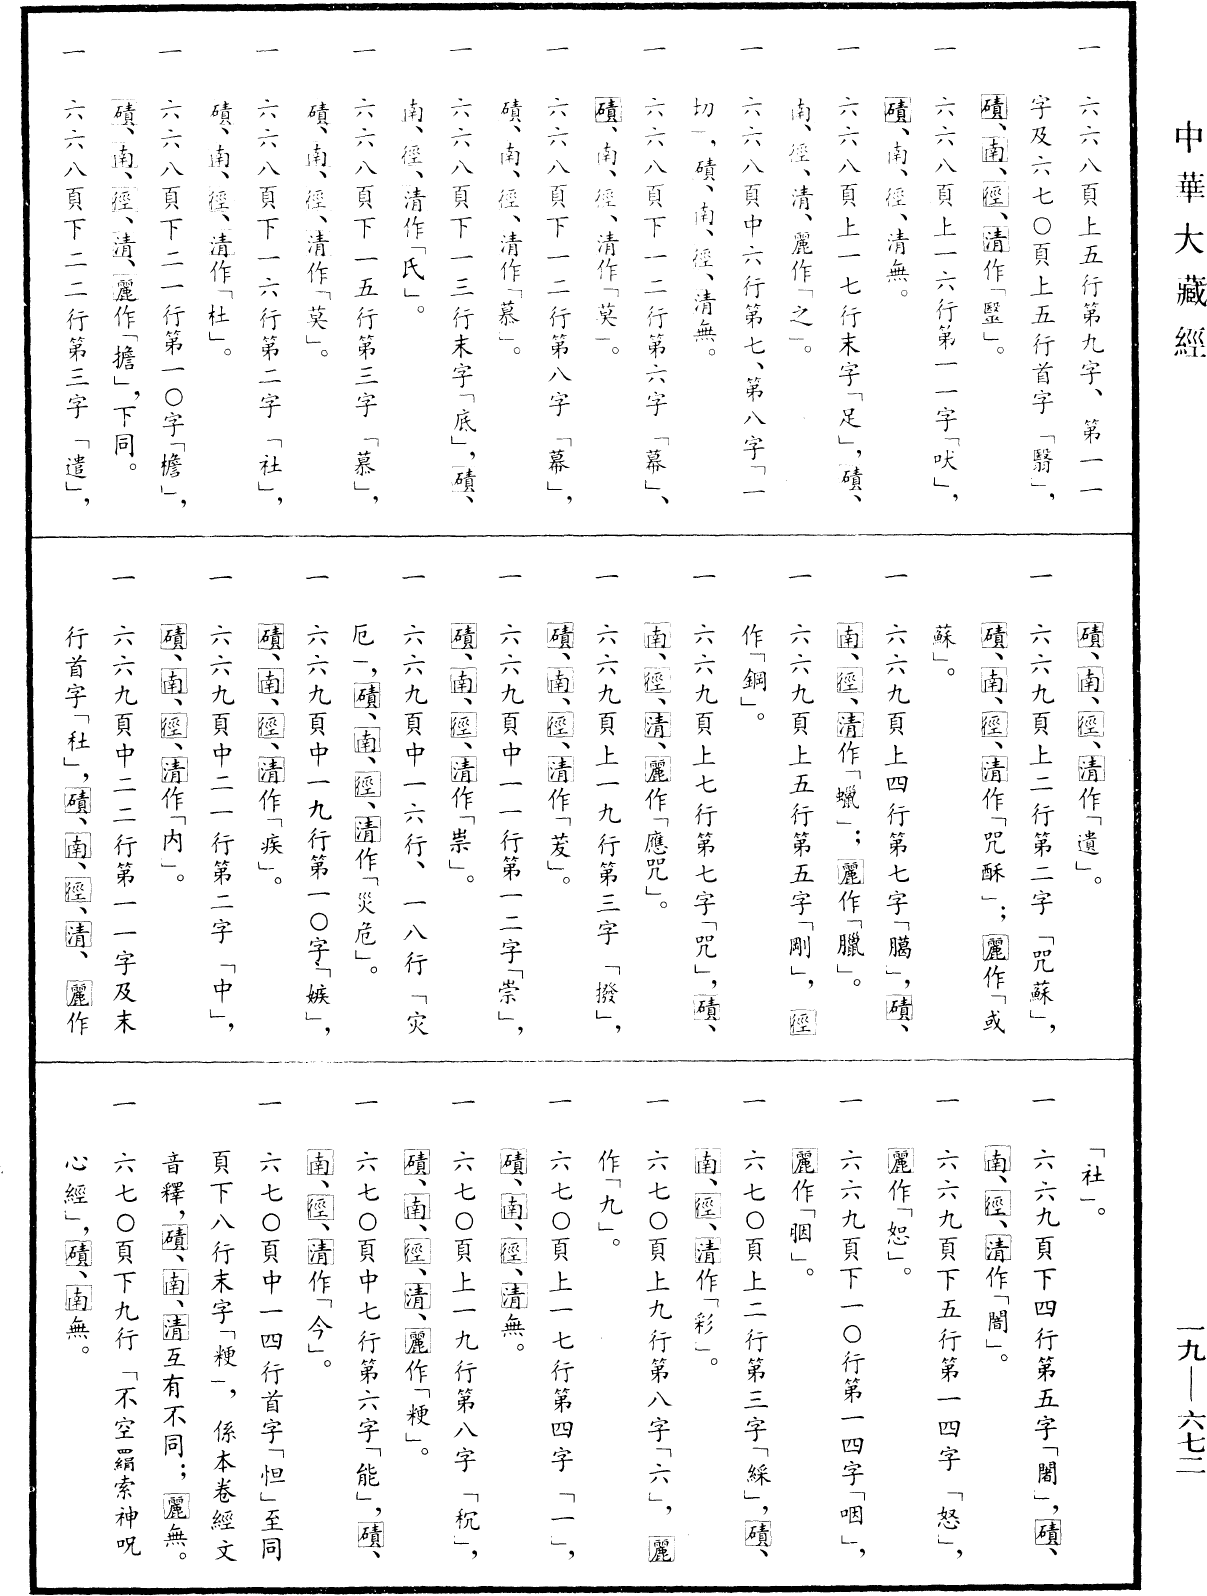 中華大藏經
一 六六八頁上五行第九字、第一一
字及六七〇頁上五行首字「翳」，
磧、南、徑、清作「瞖」。
一 六六八頁上一六行第一一字「吠」，
磧、南、徑、清無。
一 六六八頁上一七行末字「足」，磧、
南、徑、清、麗作「之」。
一 六六八頁中六行第七、第八字「一
切」，磧、南、徑、清無。
一 六六八頁下一二行第六字「幕」、
磧、南、徑、清作「莫」。
一 六六八頁下一二行第八字「幕」，
磧、南、徑、清作「慕」。
一 六六八頁下一三行末字「底」，磧、
南、徑、清作「氏」。
一 六六八頁下一五行第三字「慕」，
磧、南、徑、清作「莫」。
一 六六八頁下一六行第二字「社」，
磧、南、徑、清作「杜」。
一 六六八頁下二一行第一〇字「檐」，
磧、南、徑、清、麗作「擔」，下同。
一 六六八頁下二二行第三字「遣」，
磧、南、徑、清作「遺」。
一 六六九頁上二行第二字「咒蘇」，
磧、南、徑、清作「咒酥」；麗作「或
蘇」。
一 六六九頁上四行第七字「臈」，磧、
南、徑、清作「蠟」；麗作「臘」。
一 六六九頁上五行第五字「剛」，徑
作「鋼」。
一 六六九頁上七行第七字「咒」，磧、
南、徑、清、麗作「應咒」。
一 六六九頁上一九行第三字「撥」，
磧、南、徑、清作「茇」。
一 六六九頁中一一行第一二字「崇」，
磧、南、徑、清作「祟」。
一 六六九頁中一六行、一八行「灾
厄」，磧、南、徑、清作「災危」。
一 六六九頁中一九行第一〇字「嫉」，
磧、南、徑、清作「疾」。
一 六六九頁中二一行第二字「中」，
磧、南、徑、清作「内」。
一 六六九頁中二二行第一一字及末
行首字「杜」，磧、南、徑、清、麗作
「社」。
一 六六九頁下四行第五字「闍」，磧、
南、徑、清作「闇」。
一 六六九頁下五行第一四字「怒」，
麗作「恕」。
一 六六九頁下一〇行第一四字「咽」，
麗作「胭」。
一 六七〇頁上二行第三字「綵」，磧、
南、徑、清作「彩」。
一 六七〇頁上九行第八字「六」，麗
作「九」。
一 六七〇頁上一七行第四字「一」，
磧、南、徑、清無。
一 六七〇頁上一九行第八字「秔」，
磧、南、徑、清、麗作「粳」。
一 六七〇頁中七行第六字「能」，磧、
南、徑、清作「今」。
一 六七〇頁中一四行首字「怛」至同
頁下八行末字「粳」，係本卷經文
音釋，磧、南、清互有不同；麗無。
一 六七〇頁下九行「不空羂索神呪
心經」，磧、南無。
一九—六七二